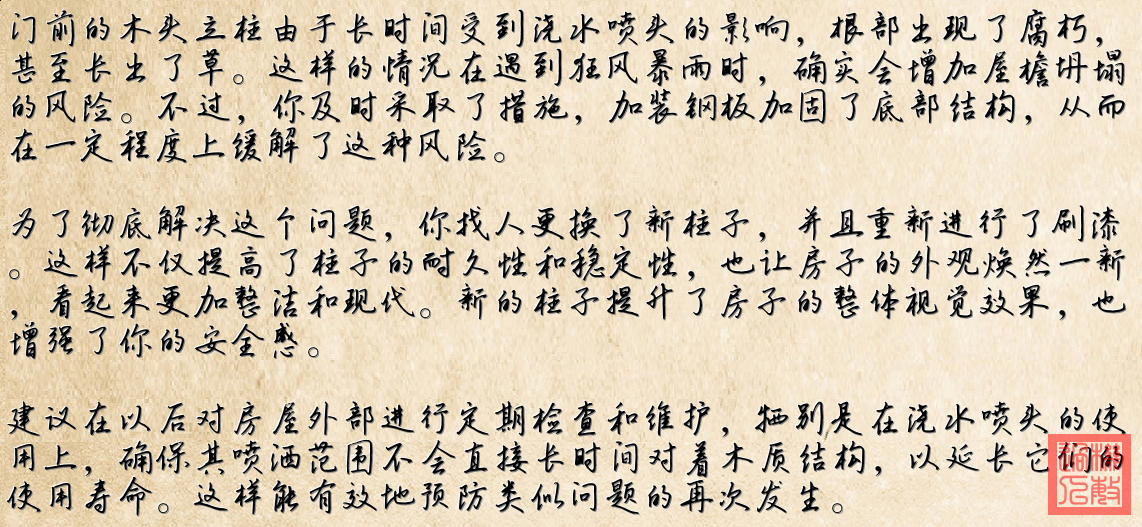 门前的木头立柱由于长时间受到浇水喷头的影响，根部出现了腐朽，
甚至长出了草。这样的情况在遇到狂风暴雨时，确实会增加屋檐坍塌
的风险。不过，你及时采取了措施，加装钢板加固了底部结构，从而
在一定程度上缓解了这种风险。
为了彻底解决这个问题，你找人更换了新柱子，并且重新进行了刷漆
。这样不仅提高了柱子的耐久性和稳定性，也让房子的外观焕然一新
，看起来更加整洁和现代。新的柱子提升了房子的整体视觉效果，也
增强了你的安全感。
建议在以后对房屋外部进行定期检查和维护，牺别是在浇水喷头的使
用上，确保其喷洒范围不会直接长时间对着木质结构，以延长它们的
使用寿命。这样能有效地预防类似问题的再次发生。